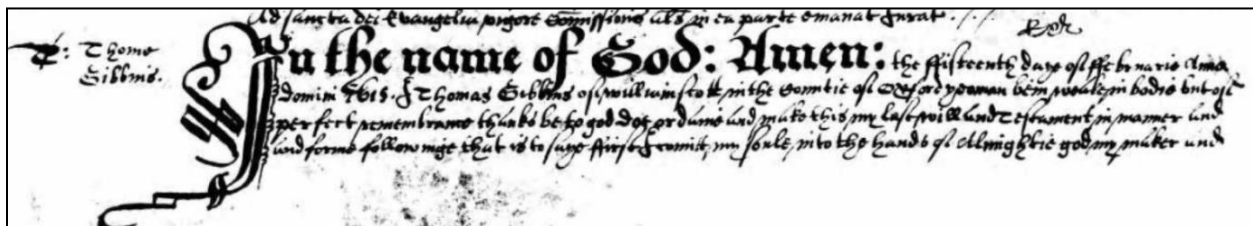 Ad sancta dei Evangelia vigore Comissionis als in ea parte emanat Jurat
T: Thome
Gibbins.
In the name of God: Amen: the ffifteenth daye of ffebruarie Anno
Domini 1615. I Thomas Gibbins of in the Countie of Oxford yeoman bein weake in bodie but of
perfect remembrance thanks be to god doe ordaine and make this my last will and Testament in manner and
and forme followinge that is to saye ffirst I comitt my soule into the hands of Allmightie god my maker and